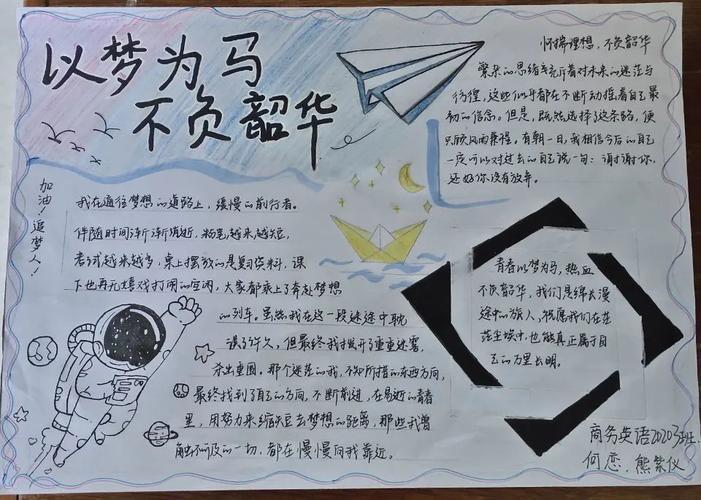 以梦为马
不负韶华
加油！追梦人！
怀揣理想，不负韶华
繁杂的思绪充斥着对未来的迷茫与
彷徨，这些似乎都在不断动摇着自己最
初的信念。但是，既然选择了这条路，便
只顾风雨兼程。有朝一日，我相信今后的自己
一定可以对过去的自己说一句：谢谢你，
还好你没有放弃。
我在通往梦想的道路上，缓慢的前行着。
伴随时间渐渐消逝，粉笔越来越短，
考试越来越多，桌上摆放的是复习资料，课
下也再无嬉戏打闹的空闲，大家都乘上了奔赴梦想
的列车。虽然我在这一段迷途中耽
误了许久，但最终我拨开了重重迷雾，
杀出重围。那个迷茫的我，不知所措的东西方向，
最终找到了自己的方向，不断前进，在易逝的青春
里，用努力来缩短去梦想的距离，那些我曾
触不可及的一切，都在慢慢向我靠近。
青春以梦为马，热血
不负韶华，我们是绵长漫
途中的旅人，祝愿我们在茫
茫尘埃中，也能真正属于自
己的万里长明。
商务英语20203班
何恋、熊紫仪